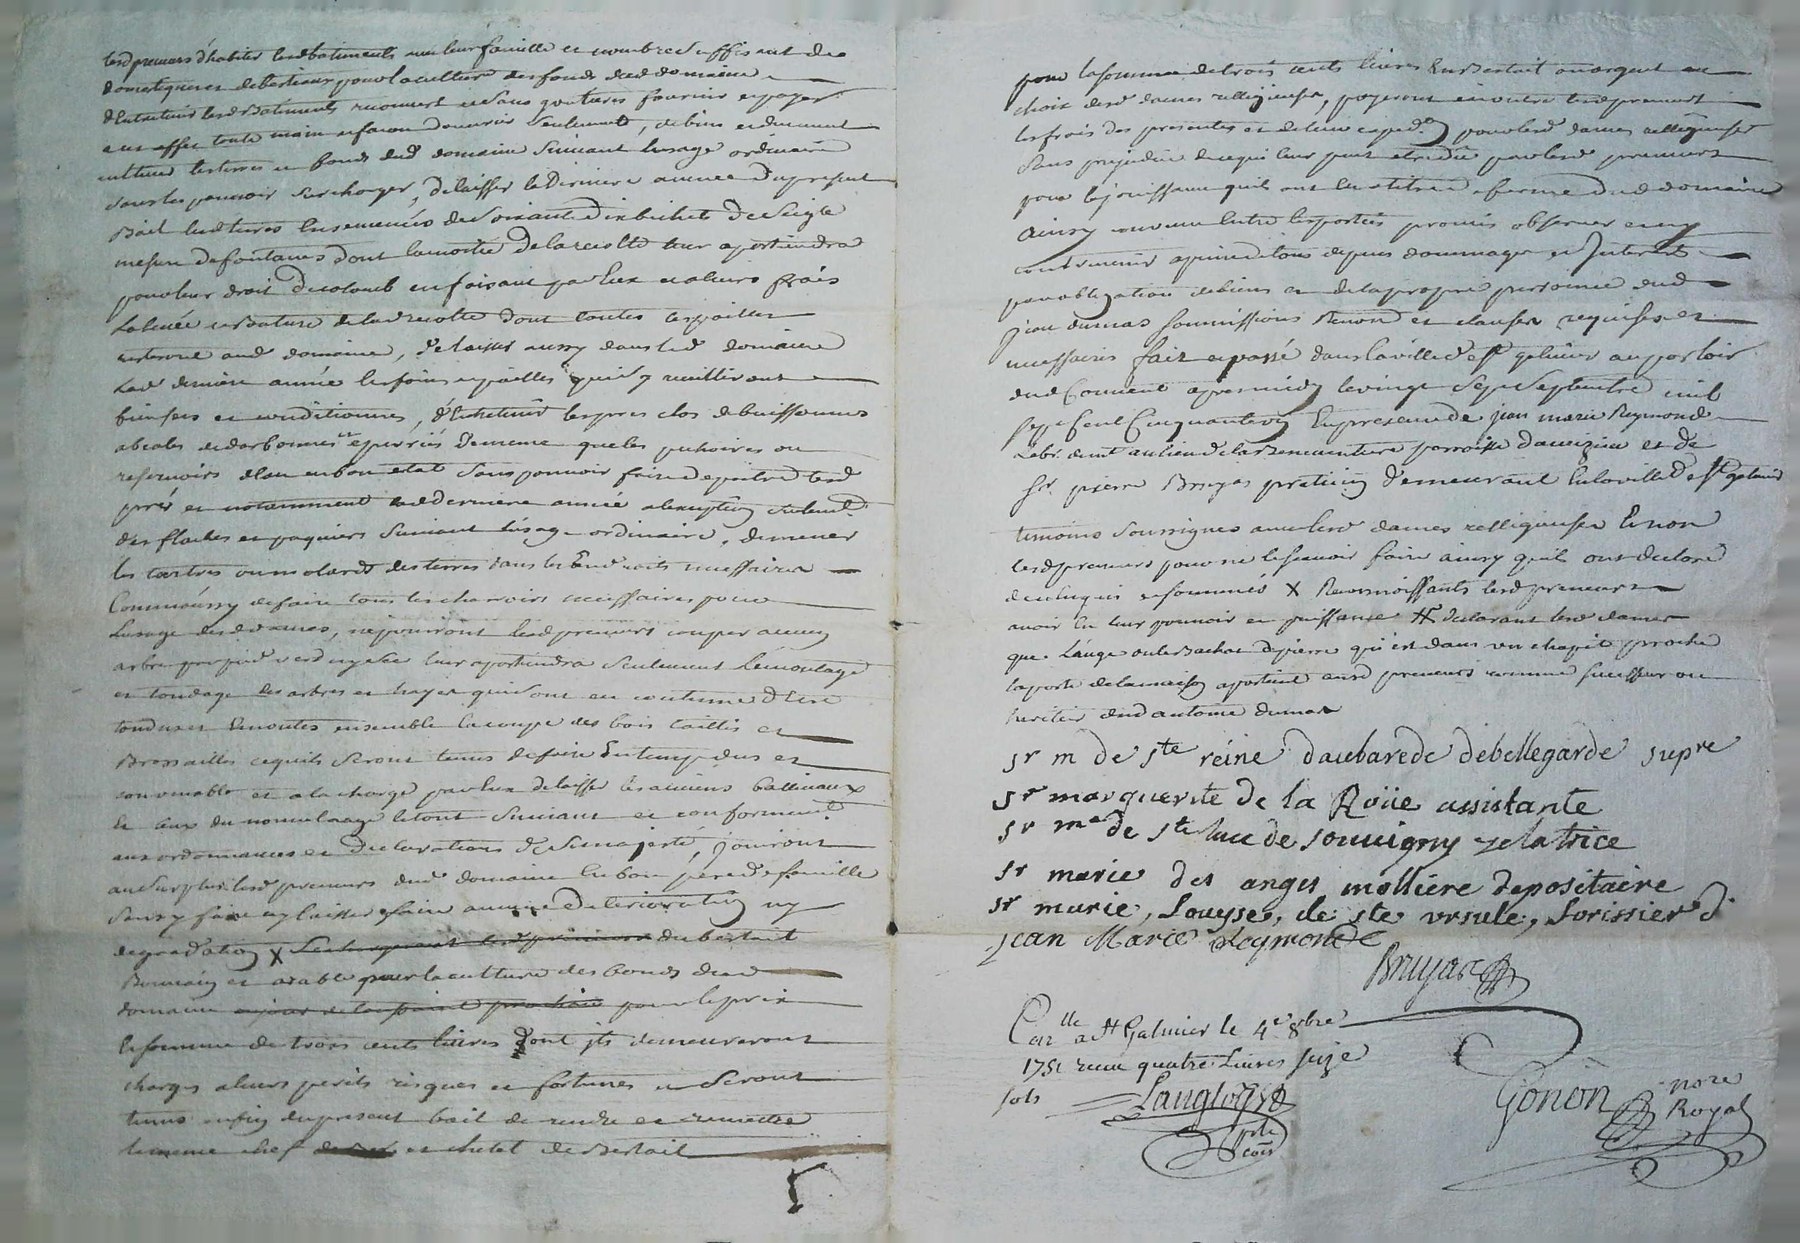 lesd preneurs d'habiter lesd batiments avec leur famille et nombre suffisant de
domestiques et de bestiaux pour la culture des fonds dud domaine
d'Entretenir lesd Batiments recouvert et sans goutieres fournir et payer
a cet effet toute main et facon d'ouvrier seulement, de bien et duement
cultiver les terres et fonds dud domaine suivant l'usage ordinaire
sans les pouvoir surcharger, de laisser la derniere annee du present
Bail lesd terres Ensemencées de soixante dix bichets de seigle
mesure de fontanes dont la moitié de la recolte leur apartiendra
pour leur droit de colonb en faisant par Eux et a leurs frais
la levée et Bature de lad recolte dont toutes les pailles
resteront aud domaine, de laisser aussy dans led domaine
lad derniere année les foins et pailles qui s'y cueilliront
bien secs et conditionnés, d'Entretenir les prés clos de buissonnées
et epurriés de meme que les puhoires ou
reservoirs d'eau en bon etat sans pouvoir faire depaitre lesd
prés et notamment lad derniere année a l'exception seulemt
des flaches et paquiers suivant l'usage ordinaire, de mener
les tertres ou molards des terres dans les Endroits necessaires
Comm'aussy de faire tous les charrois necessaires pour
l'usage desd dames, ne pourront lesd preneurs couper aucun
arbre par pied verd ny sec leur apartiendra seulement l'Emondage
et tondage des arbres et hayes qui sont en coutume d'Etre
tondues et Emondés ensemble la coupe des bois taillis et
Brossailles ce qu'ils seront tenus de faire En temps dus et
convenable et a la charge par Eux de laisser les anciens balliveaux
et ceux du nouvel aage le tout suivant et conformemt
aux ordonnances et Declarations de sa majesté, jouiront
au surplus lesd preneurs dud domaine En bon pere de famille
sans y faire ny laisser faire aucune deterioration ny
degradation X lesd preneurs du bestail
Boumain et arable pour la culture des fonds dud
domaine pour le prix
et somme de trois cents livres dont ils demeureront
charges a leurs perils risques et fortunes et seront
tenus en fin du present bail de rendre et remettre
le meme chef et chetel de Bestail
pour la somme de trois cents livres En Bestail ou argent au
choix desd dames relligieuses, payeront en outre lesd preneurs
les frais des presentes et de leur exped.on pour lesd dames relligieuses
sans prejudice de ce qui leur peut etre dû par lesd preneurs
pour la jouissance qu'ils ont Eu a titre de ferme dud domaine
Ainsy convenu Entre les parties promis observer et ny
contrevenir a peine de tous depens dommages et Interets
par obligation de biens et de la propre personne dud
jean dumas soumissions Renon.on et clauses requises et
necessaires fait et passé dans la ville de st galmier au parloir
dud Couvent apres midy le vingt sept septembre mil
sept cent Cinquante un En presence de jean marie Reymond
Labr. demt au lieu de la Rencontre parroisse d'aveizieu et de
sr pierre Bruyas praticien demeurant En la ville de st galmier
temoins soussignes avec lesd dames relligieuses Et non
lesd preneurs pour ne le scavoir faire ainsy qu'ils ont declaré
de ce Enquis et sommés X Reconnoissants lesd preneurs
avoir En leur pouvoir et puissance # declarant lesd dames
que l'auge ou le Bachat de pierre qui est dans un chapit proche
la porte de la maison apartient auxd preneurs comme successeur ou
heritier dud antoine dumas
sr m de ste reine daubarede debellegarde supre
sr marguerite de la Roüe assistante
sr me de ste luce de souvigny zelatrice
sr marie des anges mollière depositaire
sr marie, Louyse, de ste ursule, Sorissier d.
jean Marie Reymond
Bruyas
Con.lle a St Galmier le 4e 8bre
1751 recu quatre Livres seize
sols Langlois
Gonon nore
Royal